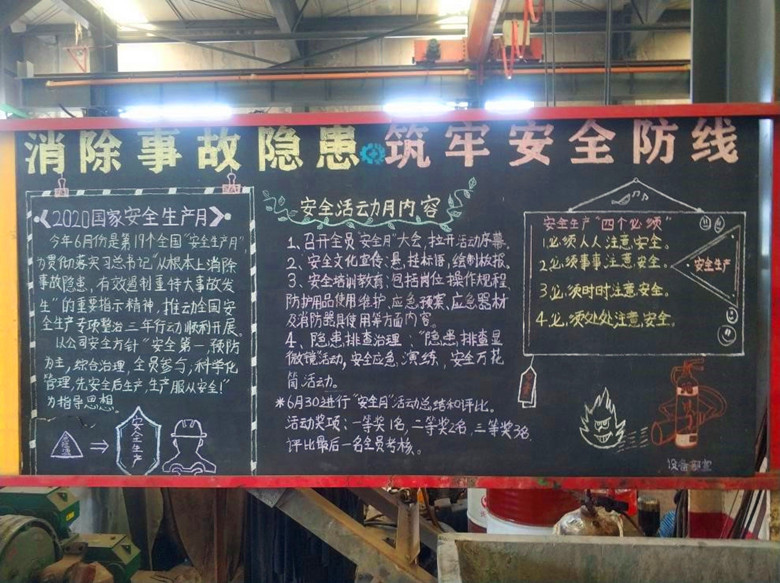 消除事故隐患 筑牢安全防线
2020国家安全生产月
今年6月份是第19个全国“安全生产月”
为贯彻落实习总书记“从根本上消除
事故隐患，有效遏制重特大事故发
生”的重要指示精神，推动全国安
全生产专项整治三年行动顺利开展。
以公司安全方针“安全第一，预防
为主，综合治理，全员参与，科学化
管理，先安全后生产，生产服从安全！”
为指导思想。
安全生产
安全活动月内容
1、召开全员“安全月”大会，拉开活动序幕。
2、安全文化宣传：悬，挂标语，绘制板报。
3、安全培训教育：包括岗位操作规程
防护用品使用维护，应急预案，应急器材
及消防器具使用等方面内容。
4、隐患排查治理：“隐患排查显
微镜活动，安全应急，演练，安全万花
筒活动。
*6月30进行“安全月”活动总结和评比。
活动奖项：一等奖1名，二等奖2名，三等奖3名
评比最后一名全员考核。
安全生产“四个必须”
1.必须人人注意安全。
2.必须事事注意安全。
3.必须时时注意安全。
4.必须处处注意安全。
安全生产